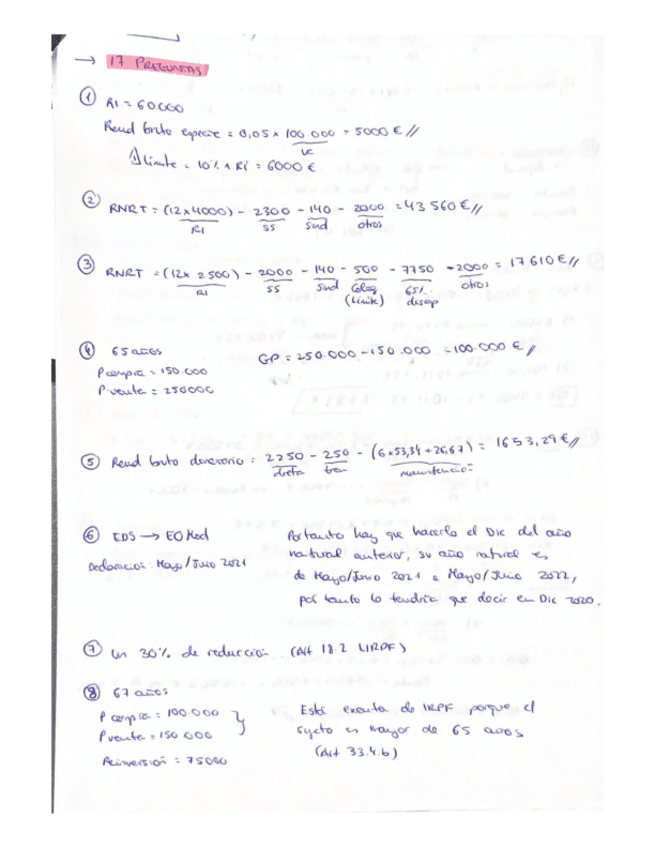 → 17 PREGUNTAS
① RI = 60.000
Rend bruto especie = 0,05 x 100.000 = 5000 €//
VC
Límite = 10% x RI = 6000 €
② RNRT = (12x4000) - 2300 - 140 - 2000 = 43 560 €//
RI SS Sind otros
③ RNRT = (12x 2500) - 2000 - 140 - 500 - 7750 - 2000 = 17 610 €//
RI SS Sind Coleg 65%. otros
(Límite) discap
④ 65 años GP = 250.000 - 150.000 = 100.000 €//
P compra = 150.000
P. venta = 250000
⑤ Rend bruto dinerario = 2250 - 250 - (6x53,34 + 26,67) = 1653,29 €//
dieta tren manutención
⑥ EDS → EO Mod Portanto hay que hacerlo el Dic del año
Declaración: Mayo/Junio 2021 natural anterior, su año natural es
de Mayo/Junio 2021 a Mayo/Junio 2022,
por tanto lo tendría que decir en Dic 2020.
⑦ Un 30% de reducción. (Art 18.2 LIRPF)
⑧ 67 años Está exenta de IRPF porque el
P compra = 100.000 sujeto es mayor de 65 años
P venta = 150 000 (Art 33.4.b)
Reinversión = 75000